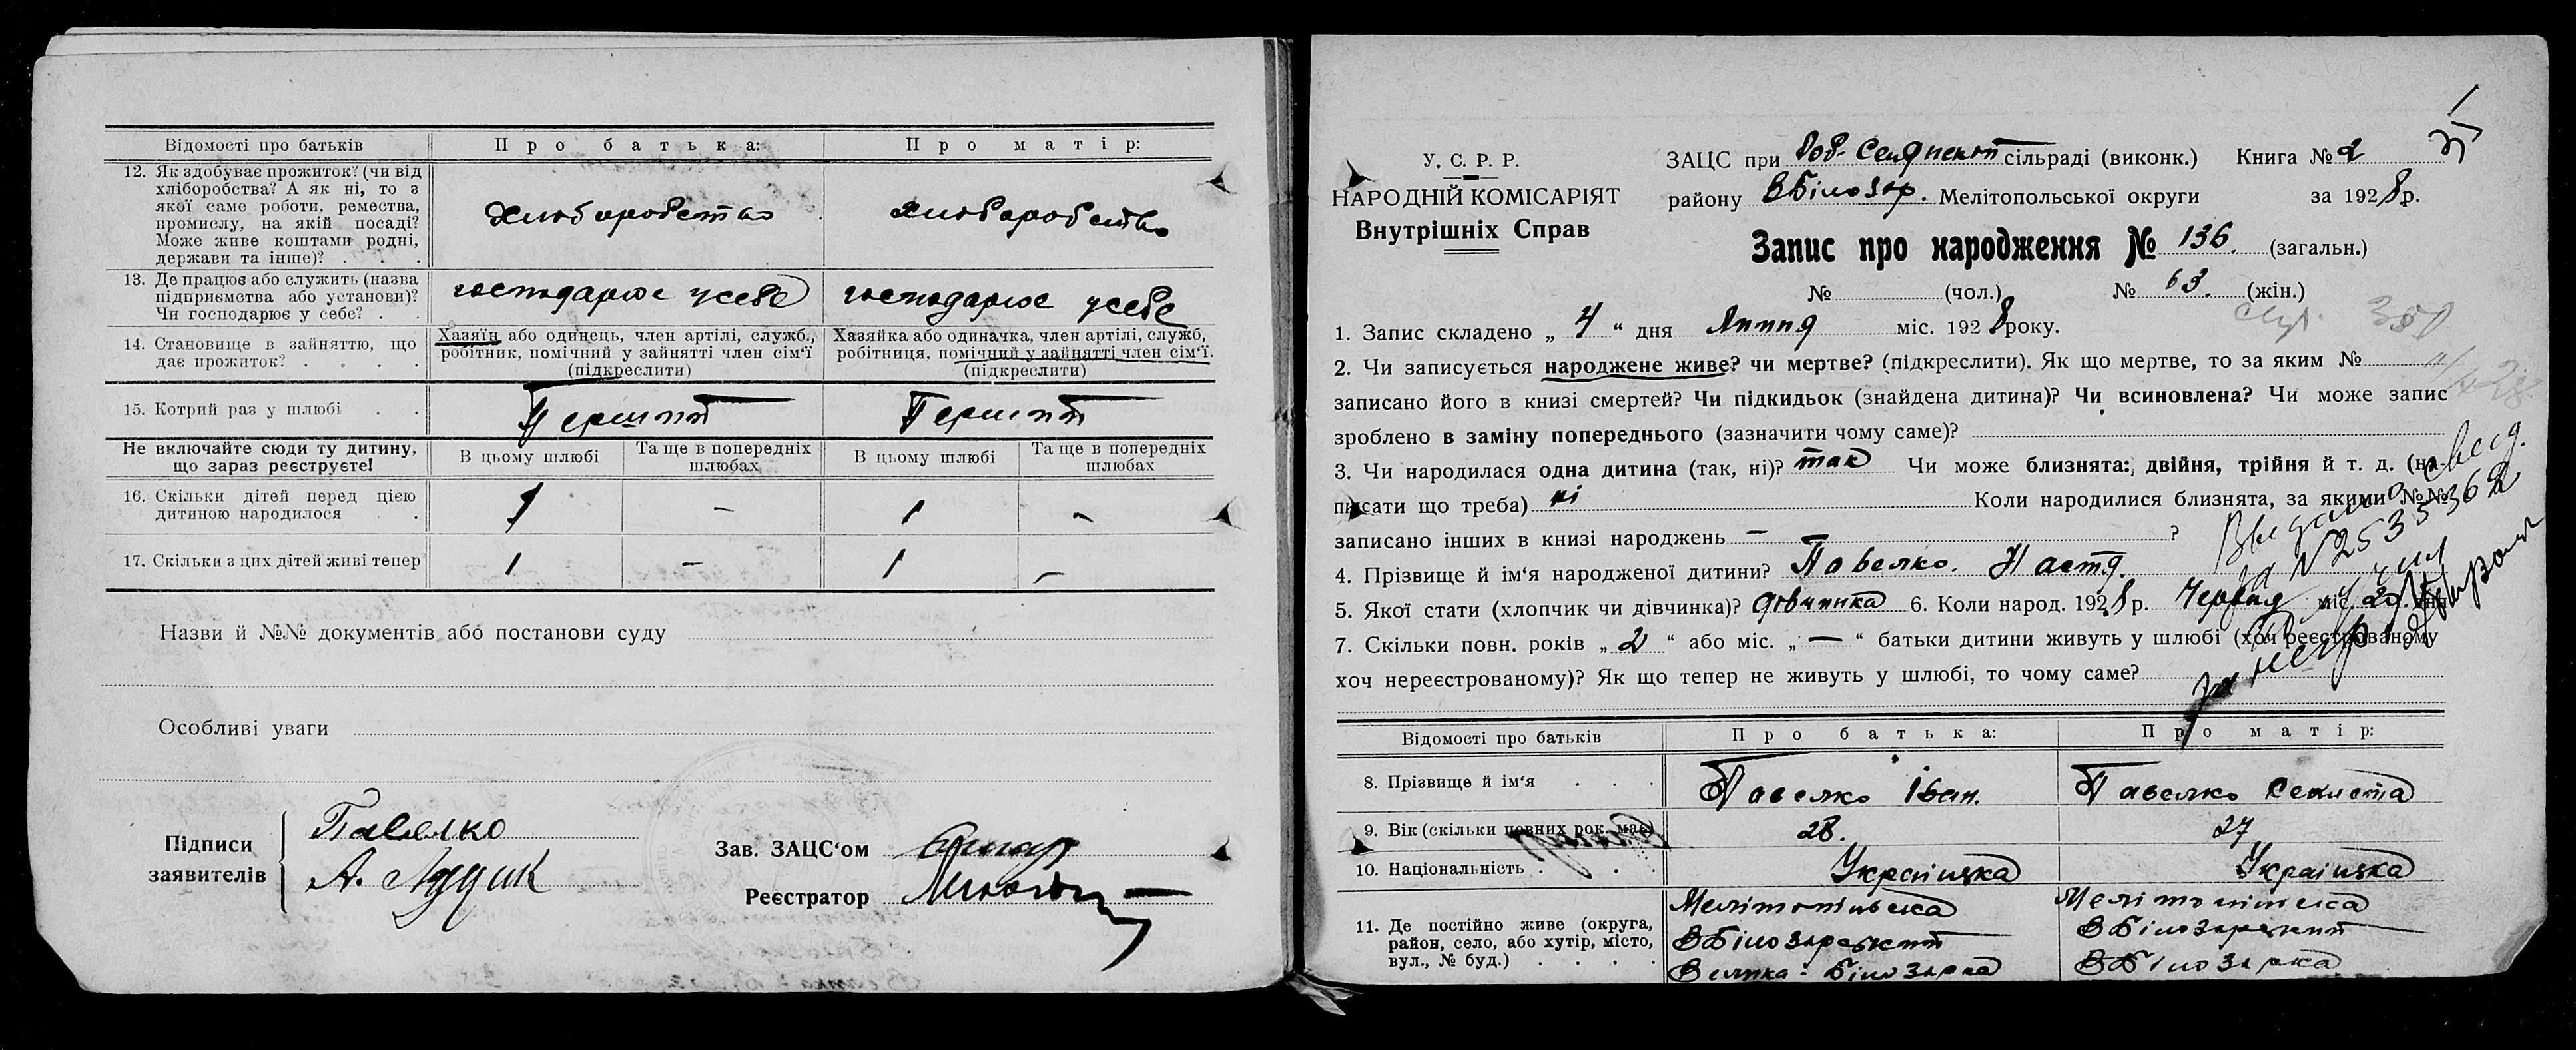 Відомості про батьків Про батька: Про матір:
12. Як здобуває прожиток? (чи від хліборобства? А як ні, то з якої саме роботи, ремества, промислу, на якій посаді? Може живе коштами родні, держави та інше)? Хліборобство Хліборобство
13. Де працює або служить (назва підприємства або установи)? Чи господарює у себе? господарює усебе господарює усебе
14. Становище в зайняттю, що дає прожиток? Хазяїн або одинець, член артілі, служб., робітник, помічний у зайнятті член сім'ї (підкреслити) Хазяйка або одиначка, член артілі, служб, робітниця, помічний у зайнятті член сім'ї. (підкреслити)
15. Котрий раз у шлюбі Перший Перший
Не включайте сюди ту дитину, що зараз реєструєте! В цьому шлюбі Та ще в попередніх шлюбах В цьому шлюбі Та ще в попередніх шлюбах
16. Скільки дітей перед цією дитиною народилося 1 – 1 –
17. Скільки з цих дітей живі тепер 1 – 1 –
Назви й №№ документів або постанови суду
Особливі уваги
Підписи заявителів Павелко
А.
Зав. ЗАЦС'ом
Реєстратор
У. С. Р. Р.
НАРОДНІЙ КОМІСАРІЯТ
Внутрішніх Справ
ЗАЦС при сільраді (виконк.) Книга № 2
району ВБілозер. Мелітопольської округи за 1928 р.
Запис про народження № 136. (загальн.)
№ (чол.) № 63. (жін.)
1. Запис складено „ 4 “ дня Липня міс. 1928 року.
2. Чи записується народжене живе? чи мертве? (підкреслити). Як що мертве, то за яким №
записано його в книзі смертей? Чи підкидьок (знайдена дитина)? Чи всиновлена? Чи може запис
зроблено в заміну попереднього (зазначити чому саме)?
3. Чи народилася одна дитина (так, ні)? так Чи може близнята: двійня, трійня й т. д. (на-
писати що треба) ні Коли народилися близнята, за якими №№
записано інших в книзі народжень – ?
4. Прізвище й ім'я народженої дитини? Павелко. Настя.
5. Якої стати (хлопчик чи дівчинка)? дівчинка 6. Коли народ. 1928 р. Червня міс. 29. дня
7. Скільки повн. років „ 2 “ або міс. „ — “ батьки дитини живуть у шлюбі (хоч реєстрованому
хоч нереєстрованому)? Як що тепер не живуть у шлюбі, то чому саме?
Відомості про батьків Про батька: Про матір:
8. Прізвище й ім'я Павелко Іван. Павелко
9. Вік (скільки повних рок. має) 28. 27
10. Національність Українська Українська
11. Де постійно живе (округа, район, село, або хутір, місто, вул., № буд.) Мелітопільска Мелітопільска
ВБілозерский ВБілозерский
Велика-Білозерка ВБілозерка